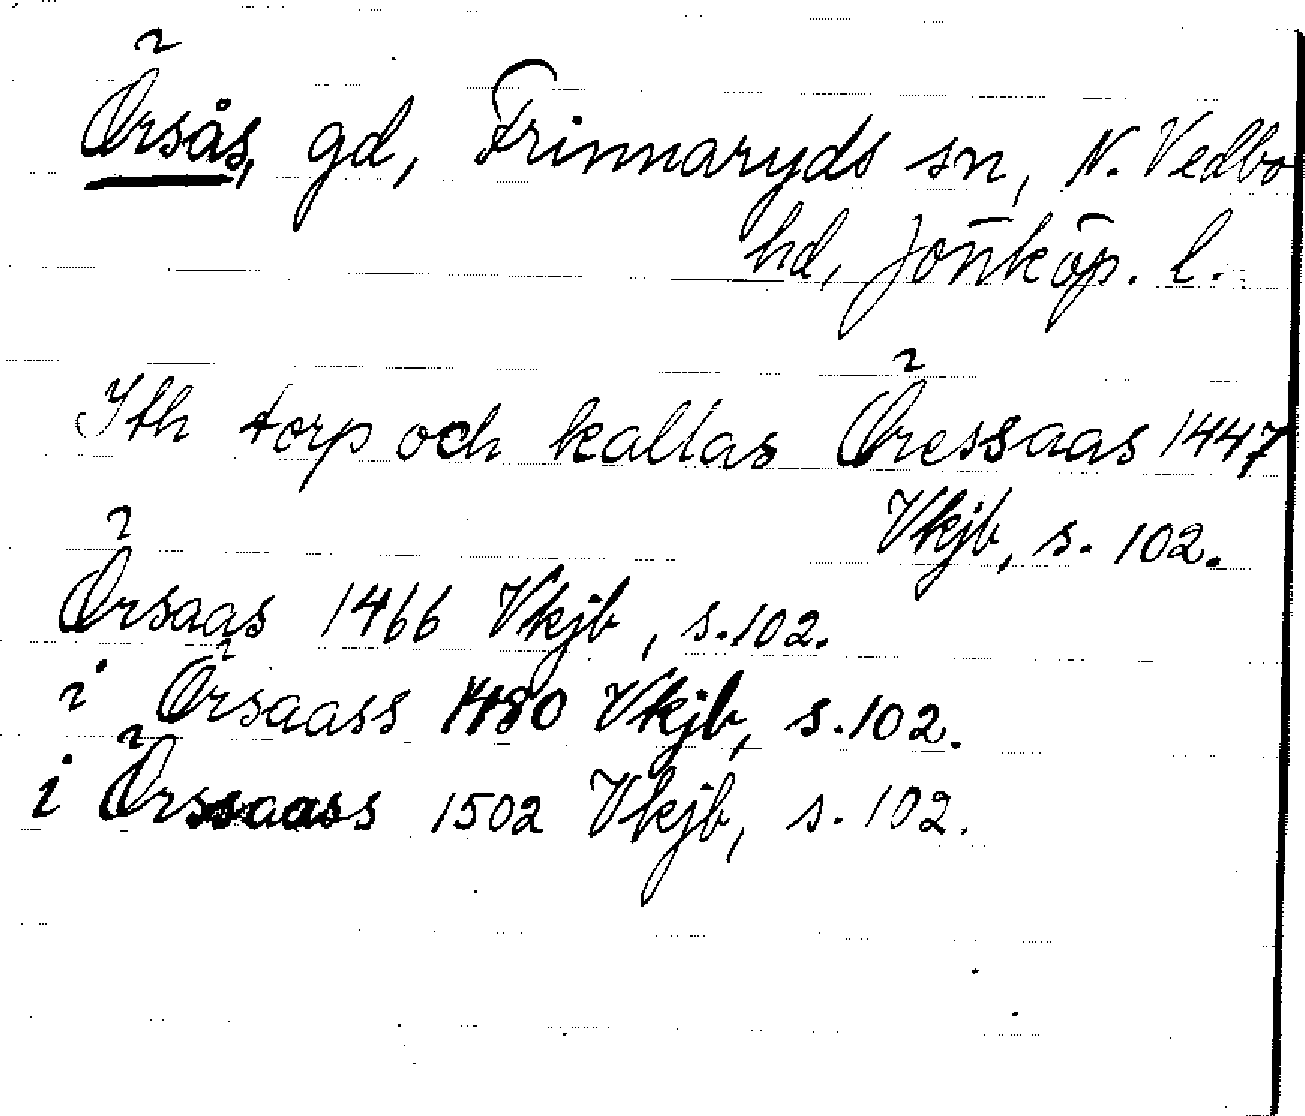 Örsås, gd, Frinnaryds sn, N. Vedbo
hd, Jönköp. l.
Ith torp och kallas Öressaas 1447
Vkjb, s. 102.
Örsaas 1466 Vkjb, s. 102.
i Örsaass 1480 Vkjb, s. 102.
i Örssaass 1502 Vkjb, s. 102.